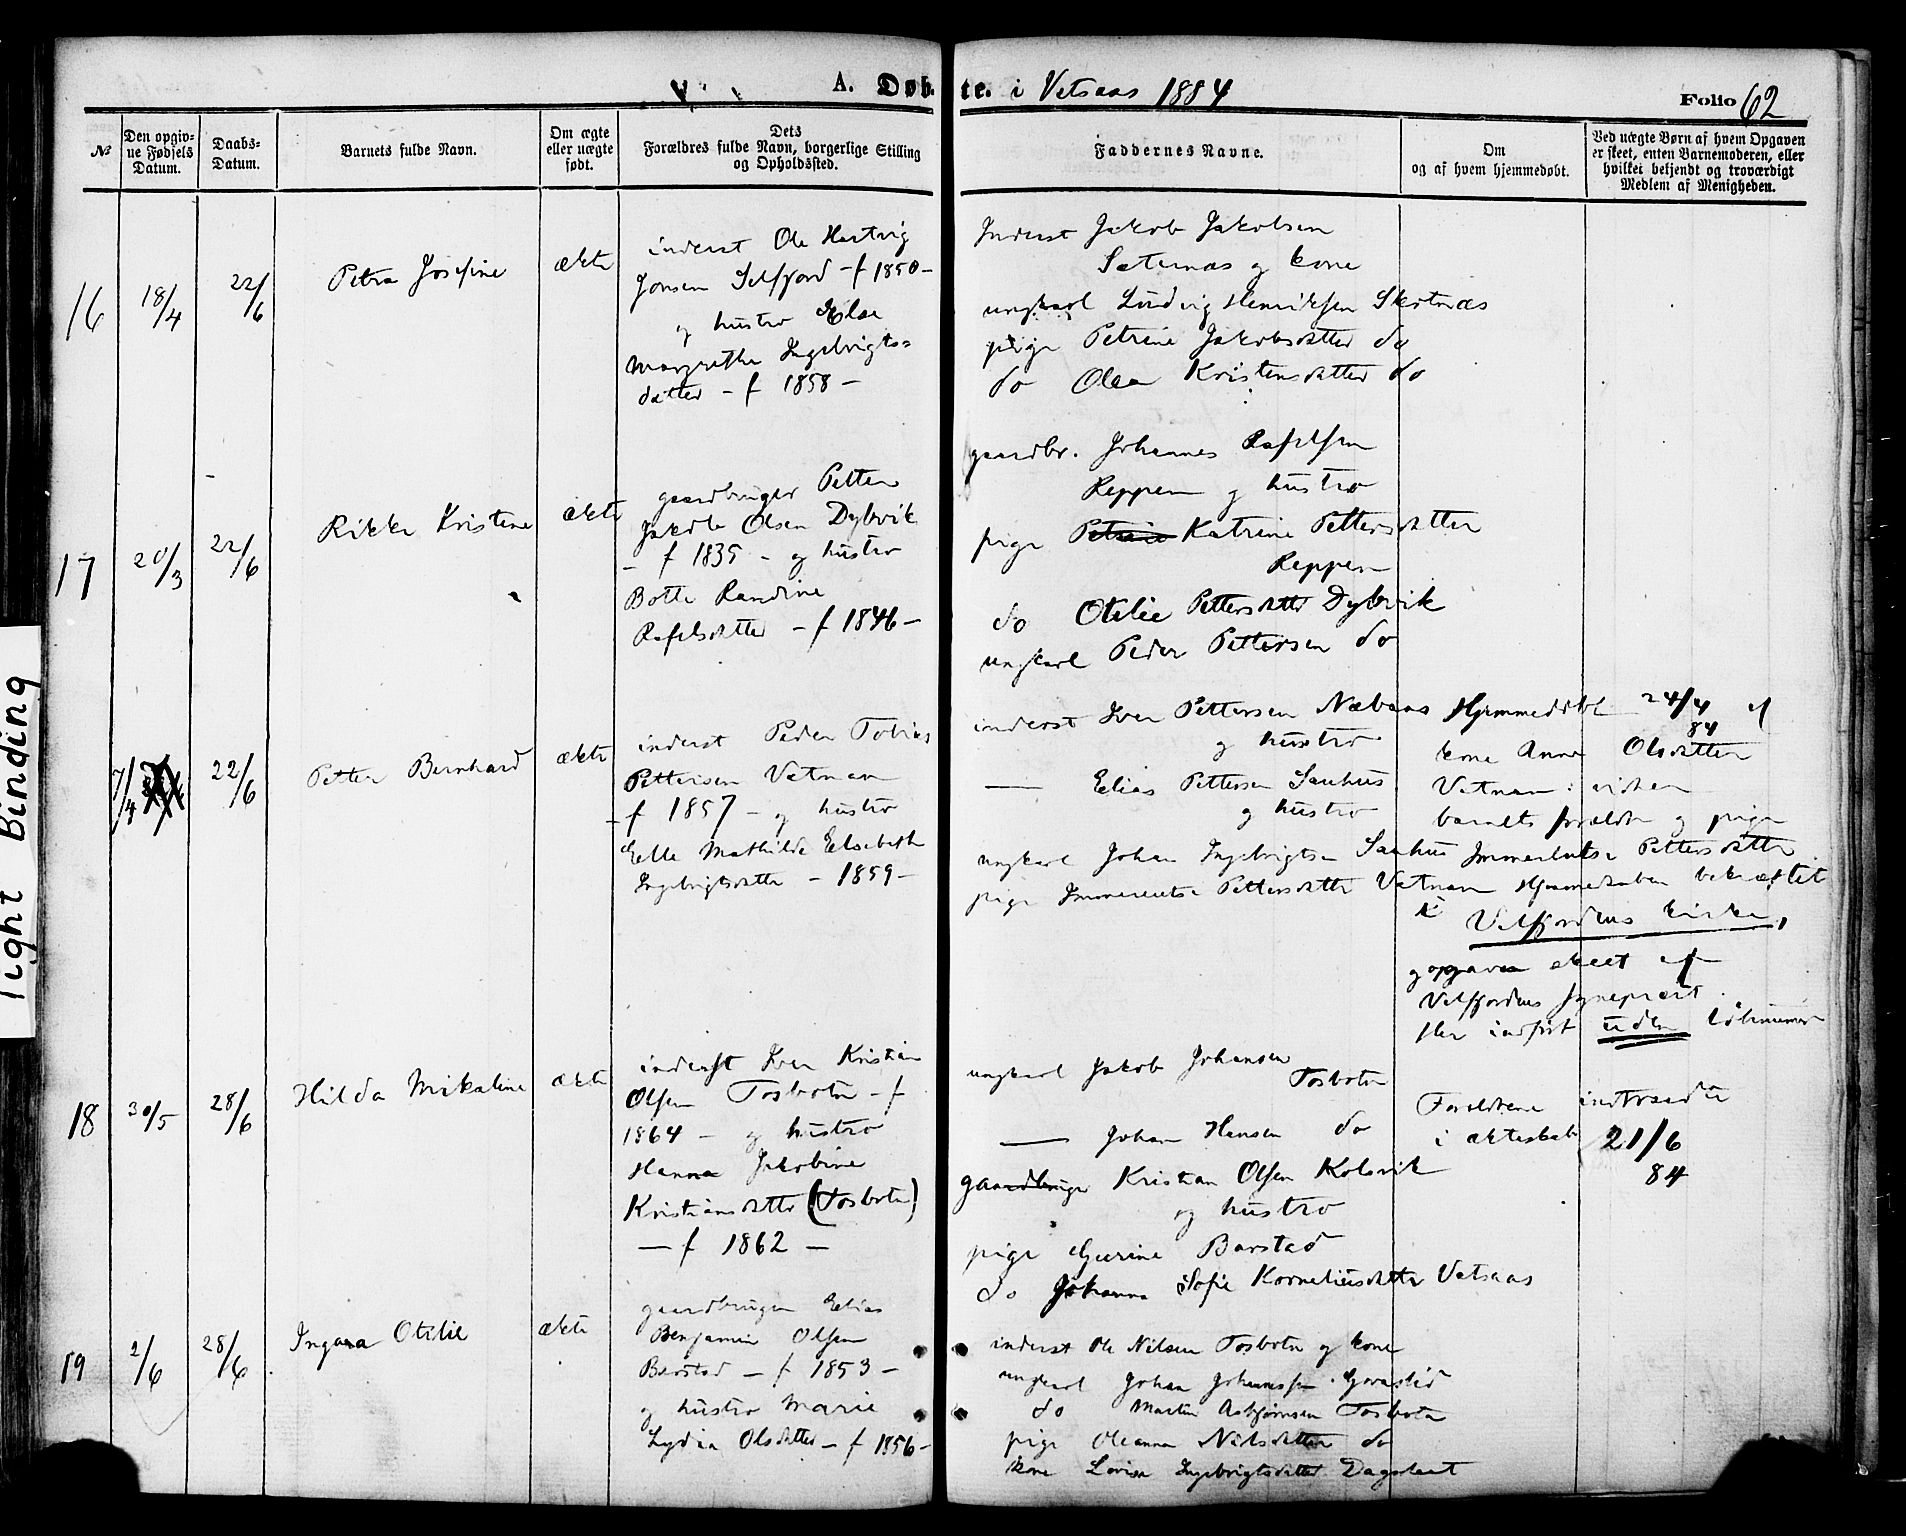 A. Døbte. i Vetsaas 1884
Folio 62
№
Den opgivne Fødsels Datum.
Daabs-Datum.
Barnets fulde Navn.
Om ægte eller uægte født.
Dets Forældres fulde Navn, borgerlige Stilling og Opholdssted.
Faddernes Navne.
Om og af hvem hjemmedøbt.
Ved uægte Børn af hvem Opgaven er skeet, enten Barnemoderen, eller hvilket bekjendt og troværdigt Medlem af Menigheden.
16
18/4
22/6
Petra Josefine
ækte
inderst Ole Hartvig
Jonsen Selfjord - f 1850 -
og hustro Else
Margrethe Ingebrigts=
datter - f 1858 -
Inderst Jakob Jakobsen
Sæternæs og kone
ungkarl Ludvig Henriksen Skotnæs
pige Petrine Jakobsdatter do
do Olea Kristensdatter do
17
20/3
22/6
Rikke Kristine
ækte
gaardbruger Petter
Jakob Olsen Dybvik
- f 1839 - og hustro
Botte Randine
Rafelsdatter - f 1846 -
gaardbr. Johannes Rafelsen
Reppen og hustro
pige Petrine Katrine Pettersdatter
Reppen
do Otelie Pettersdatter Dybvik
ungkarl Peder Pettersen do
7/4
22/6
Petter Bernhard
ækte
inderst Peder Tobias
Pettersen Vatnan
- f 1857 - og hustro
Elle Mathilde Elsebeth
Ingebrigtsdatter - 1859 -
inderst Iver Pettersen Næbaas
og hustro
— Elias Pettersen Sauhus
og hustro
ungkarl Johan Ingebrigtsen Sauhus
pige Immerentse Pettersdatter Vatnan
Hjemmedøbt 24/4 84 af
kone Anne Olsdatter
Vatnan: viden
barnets forældre og pige
Immerentse Pettersdatter
Hjemmedaaben bekræftet
i Velfjordens kirke,
og opgaven skeet af
Velfjordens sogneprest.
Her indført uden løbenummer
18
30/5
28/6
Hilda Mikaline
ækte
inderst Iver Kristian
Olsen Tosbotn - f
1864 - og hustro
Hanna Jakobine
Kristiansdatter (Tosbotn)
- f 1862 -
ungkarl Jakob Johansen
Tosbotn
— Johan Hansen do
gaardbruger Kristian Olsen Kolsvik
og hustro
pige Gjerine Barstad
do Johanna Sofie Korneliusdatter Vetsaas
Forældrene indtraadte
i ækteskab 21/6 84
19
2/6
28/6
Ingara Otelie
ækte
gaardbruger Elias
Benjamin Olsen
Barstad - f 1853 -
og hustro Marie
Lydia Olsdatter - f 1856 -
inderst Ole Nilsen Tosbotn og kone
ungkarl Johan Johannessen
do Martin Asbjørnsen Tosbotn
pige Oleanna Nilsdatter do
kone Lovisa Ingebrigtsdatter Dagslaat
Tight Binding